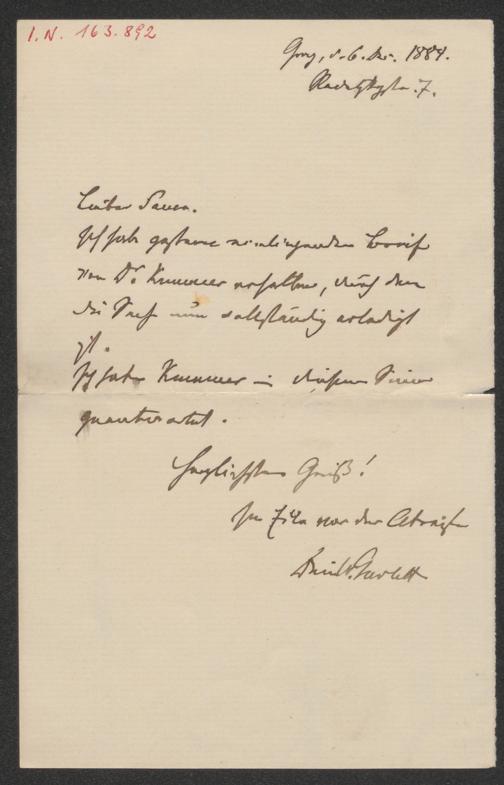 I. N. 163.892
Graz, d. 6. Dez. 1884.
Radetzkystr. 7.
Lieber Sauer.
Ich habe gestern einliegenden Brief
von Dr. Kummer erhalten, durch den
die Sache nun vollständig erledigt
ist.
Ich habe Kummer in diesem Sinne
geantwortet.
Herzlichsten Gruß!
In Eile vor der Abreise